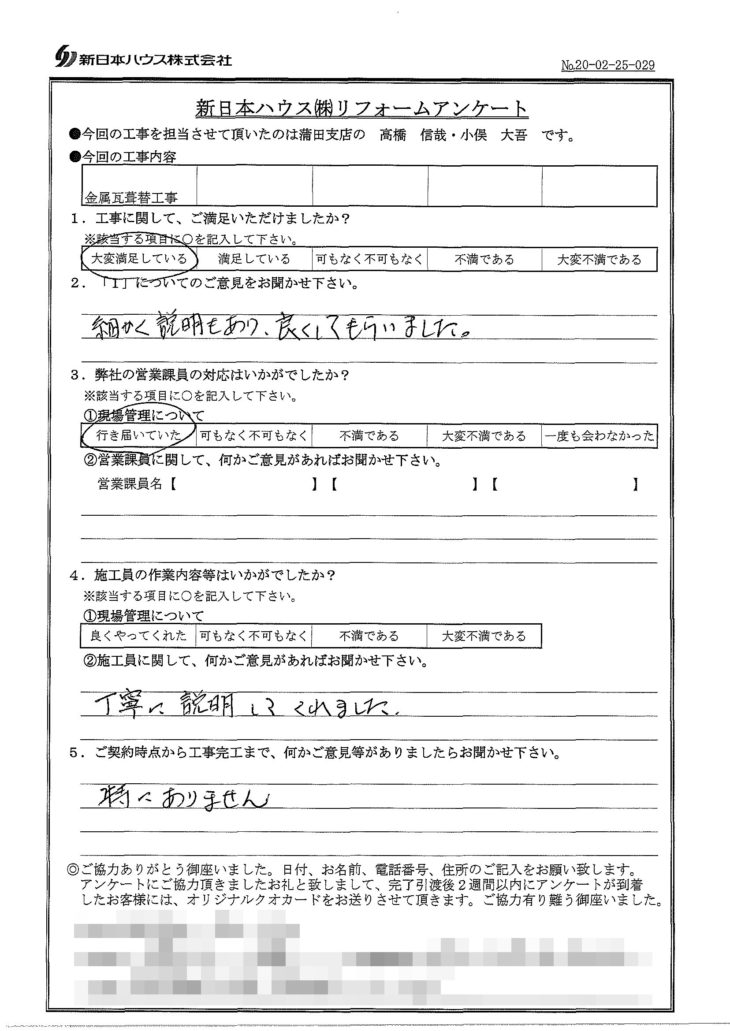 新日本ハウス株式会社
No.20-02-25-029
新日本ハウス㈱リフォームアンケート
●今回の工事を担当させて頂いたのは蒲田支店の 高橋 信哉・小俣 大吾 です。
●今回の工事内容
金属瓦葺替工事
1．工事に関して、ご満足いただけましたか？
※該当する項目に○を記入して下さい。
大変満足している 満足している 可もなく不可もなく 不満である 大変不満である
2．「1」についてのご意見をお聞かせ下さい。
細かく説明もあり、良くしてもらいました。
3．弊社の営業課員の対応はいかがでしたか？
※該当する項目に○を記入して下さい。
①現場管理について
行き届いていた 可もなく不可もなく 不満である 大変不満である 一度も会わなかった
②営業課員に関して、何かご意見があればお聞かせ下さい。
営業課員名【 】【 】【 】
4．施工員の作業内容等はいかがでしたか？
※該当する項目に○を記入して下さい。
①現場管理について
良くやってくれた 可もなく不可もなく 不満である 大変不満である
②施工員に関して、何かご意見があればお聞かせ下さい。
丁寧に説明してくれました.
5．ご契約時点から工事完工まで、何かご意見等がありましたらお聞かせ下さい。
特にありません
◎ご協力ありがとう御座いました。日付、お名前、電話番号、住所のご記入をお願い致します。
アンケートにご協力頂きましたお礼と致しまして、完了引渡後２週間以内にアンケートが到着
したお客様には、オリジナルクオカードをお送りさせて頂きます。ご協力有り難う御座いました。